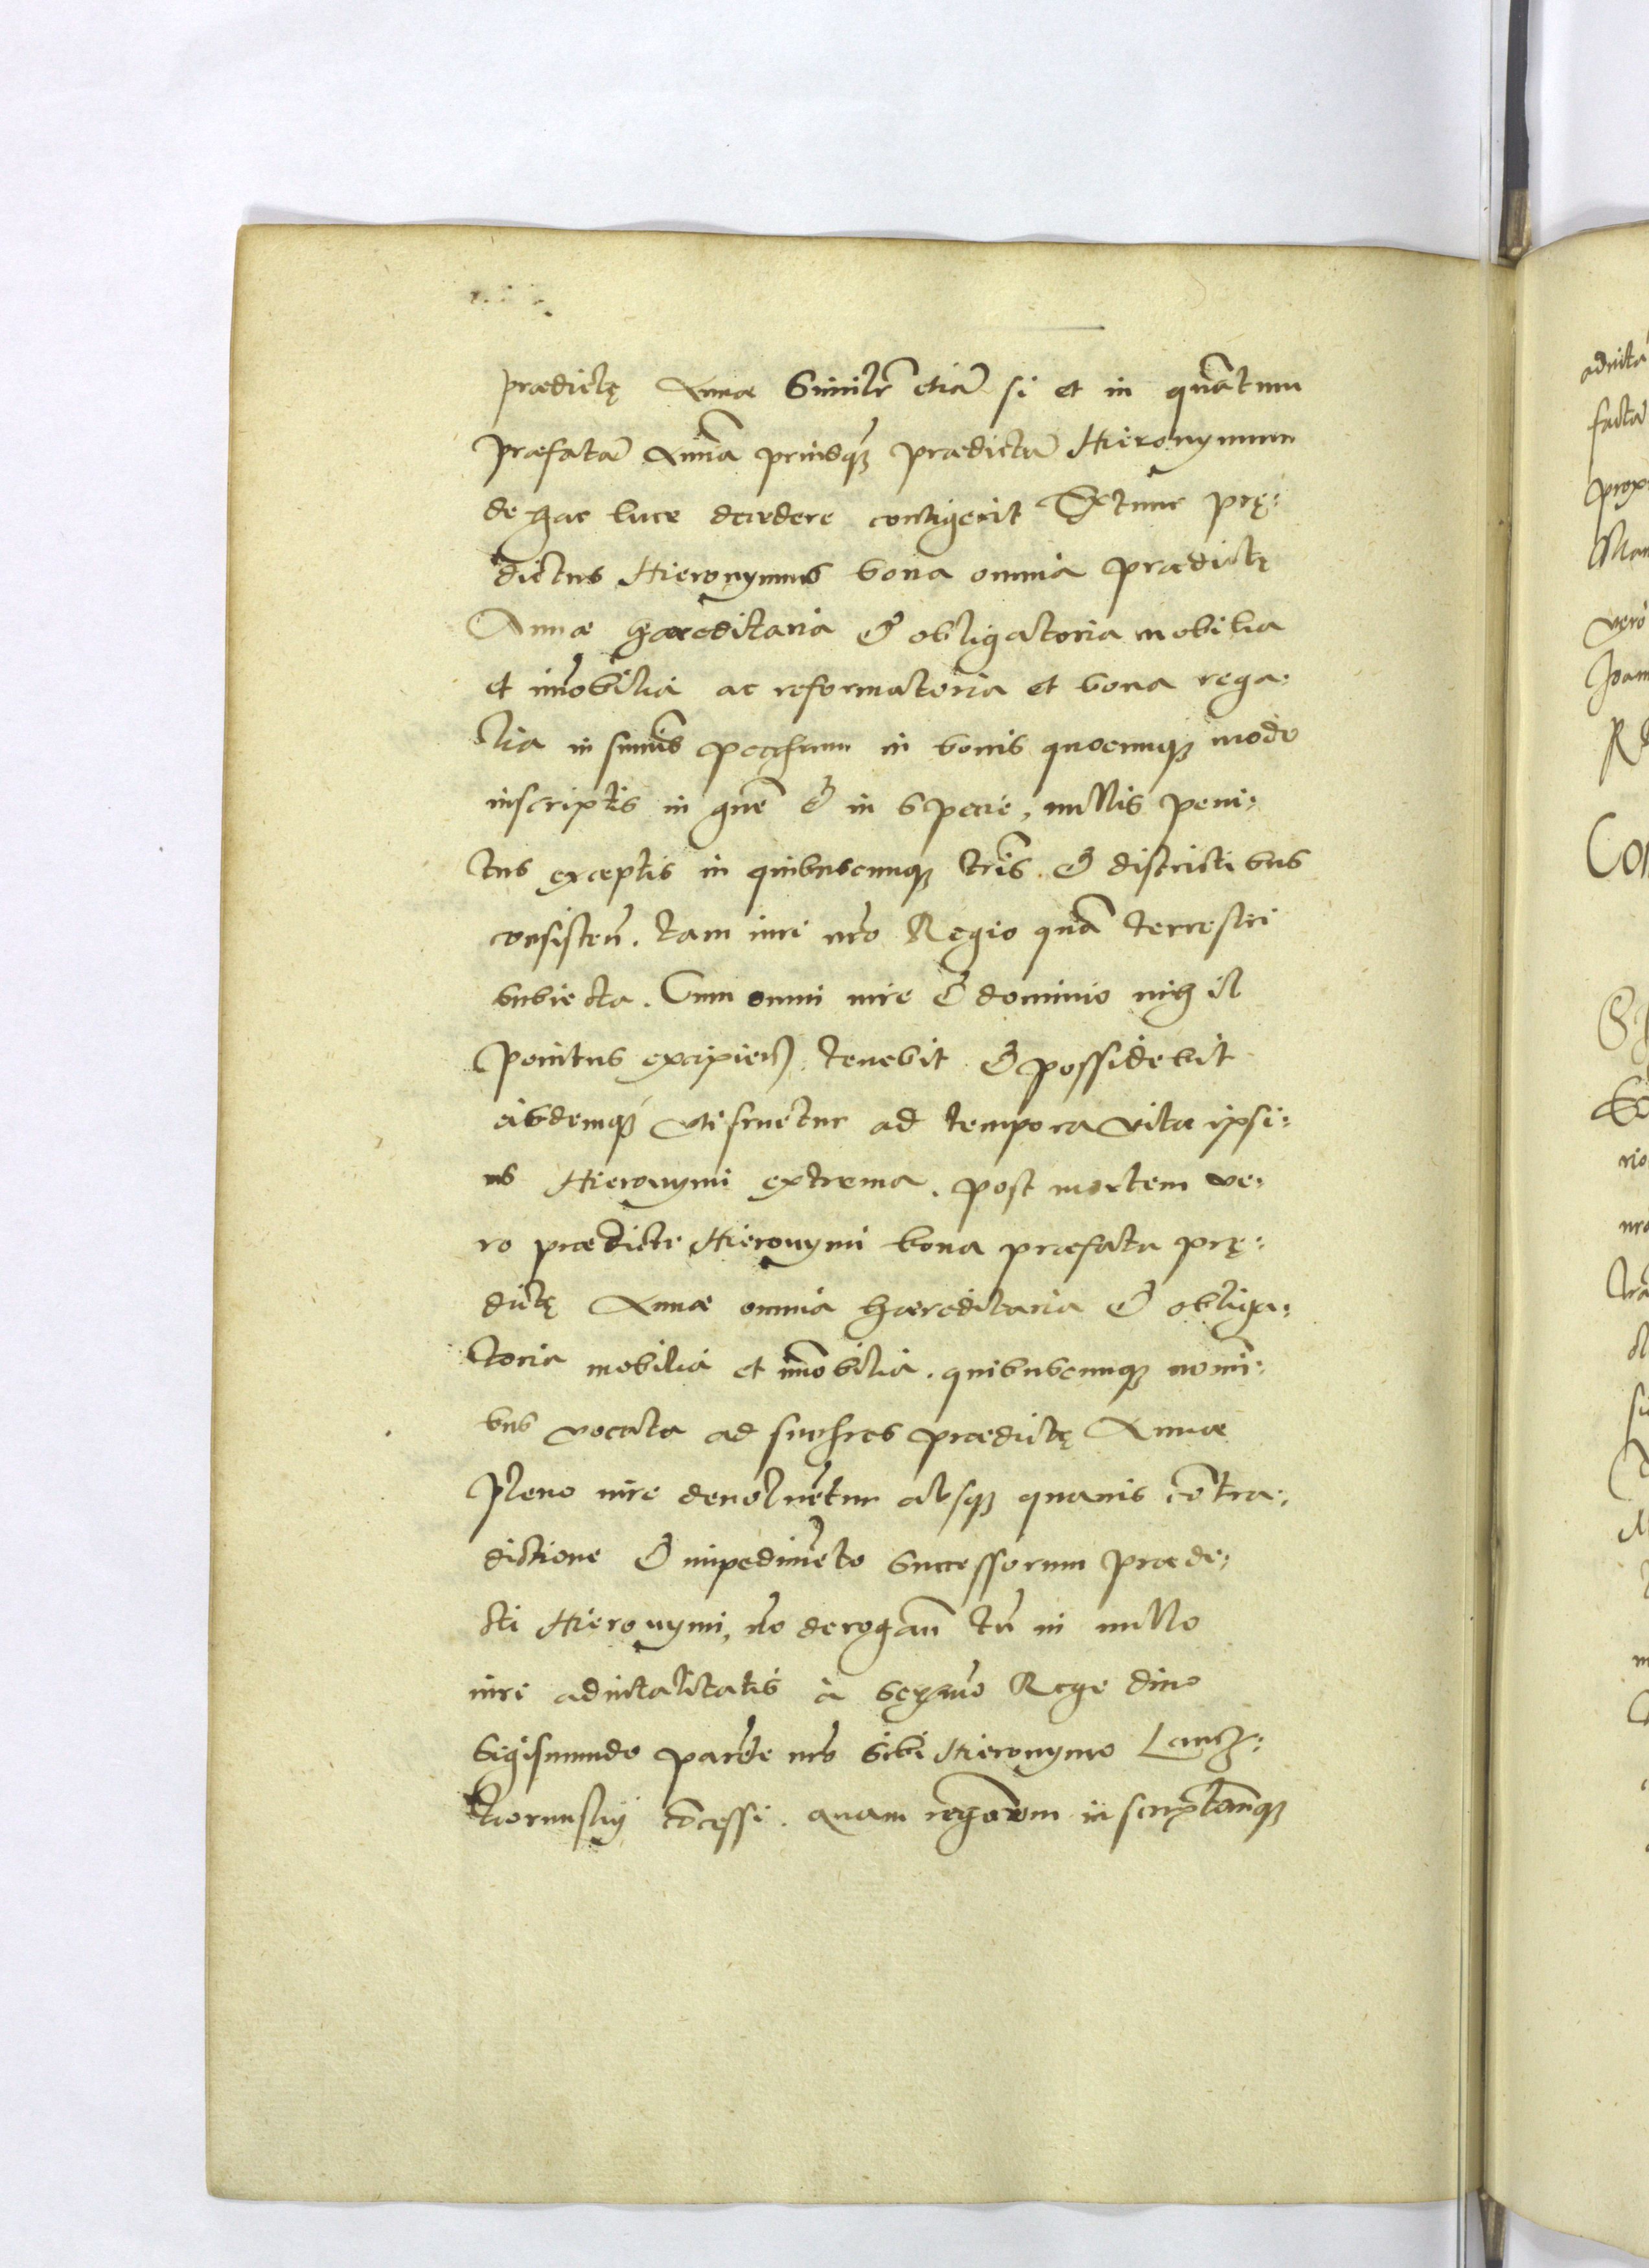 prædictę Annæ Similr̃ etiã si et in quãtum
præfatã Annã priusq̃ prædictũ Hieronymum
de hac luce decedere contigerit Extunc prę:
dictus Hieronymus bona omnia prædictę
Annæ hæreditaria & obligatoria mobilia
et im̃obilia ac reformatoria et bona rega:
lia in sum̃is pecchum in bonis quocunq modo
inscriptis in gñe & in specie, nullis peni:
tus exceptis in quibuscunq tr̃is & districtibus
consisteñ. tam iuri nr̃o Regio quã terrestri
subiecta. Cum omni iure & dominio nihil
penitus excipień tenebit & possidebit
eisdemq utifruetur ad tempora vitæ ipsi:
us Hieronymi extrema. post mortem ve:
ro prædicti Hieronymi bona præfata prę:
dictę Annæ omnia hæreditaria & obliga:
toria mobilia et im̃obilia. quibuscunq nomĩ:
bus vocata ad succres prædictę Annæ
pleno iure devoluẽtur absq quavis cõtra:
dictione & impedimẽto successorum præde:
cti Hieronymi, nõ derogañ tñ in nullo
iuri advitalitatis à serm̃o Rege divo
Sigismundo parẽte nr̃o sibi Hieronymo Lancz:
koruński cõcessi. quam reformatorem inscriptiõnq